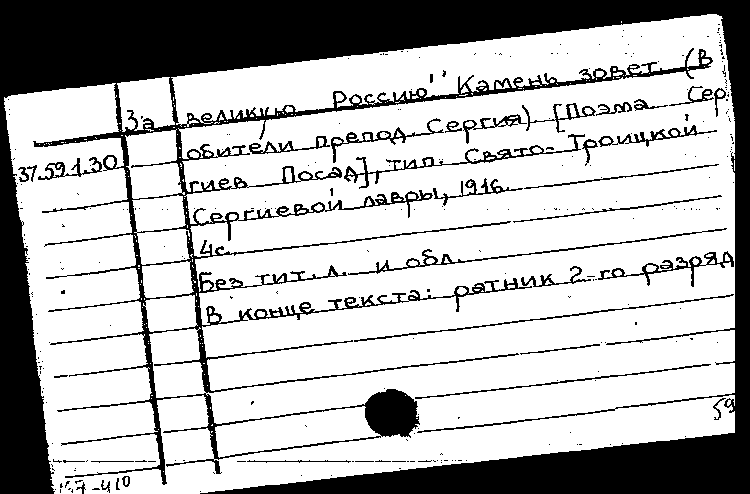 За великую Россию" Камень зовет. (В
37.59.1.30 обители препод. Сергия) [Поэма Сер
гиев Посад], тип. Свято-Троицкой
Сергиевой лавры, 1916.
4с.
Без тит. л. и обл.
В конце текста: ратник 2-го разряд
59
157-410